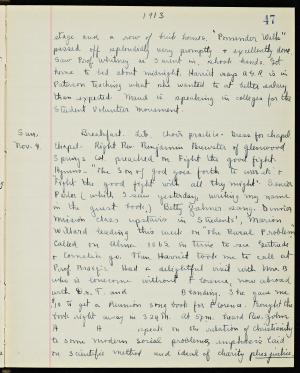 1913
47
stage and a row of brick houses. "Pomander Walk"
passed off splendidly, very promptly & excellently done.
Saw Prof Whitney as I went in, shook hands. Got
home to bed about midnight. Harriet says A.G.R. is in
Paterson teaching what she wanted to at better salary
than expected. Maud is speaking in colleges for the
Student Volunteer Movement.
Sun. Breakfast. Lib. Choir practice. Dress for chapel
Nov. 9. Chapel. Right Rev. Benjamin Brewster of Glenwood
Springs Col. preached on Fight the good fight.
Hymns - "The Son of God goes forth to war" &
Fight the good fight with all thy might. Senior
Parlor (which I saw yesterday, writing my name
in the guest book) Betty Johnes down. Dinner
Mission class upstairs in Students', Marion
Willard leading this week on "The Rural Problem
Called on Aline 1862 in time to see Gertrude
& Cornelia go. Then Harriet took me to call at
Prof Bracq's. Had a delightful visit with Mrs B
who is lonesome without Florence, now abroad
with Dr. T and Branding. She gave me
$10 to get a Reunion song book for Florence. Bought the
book right away in 329 M. At 5pm. heard Rev. John
H H speak on the relation of Christianity
to some modern social problems, emphasis laid
on scientific method and ideal of charity plus justice.